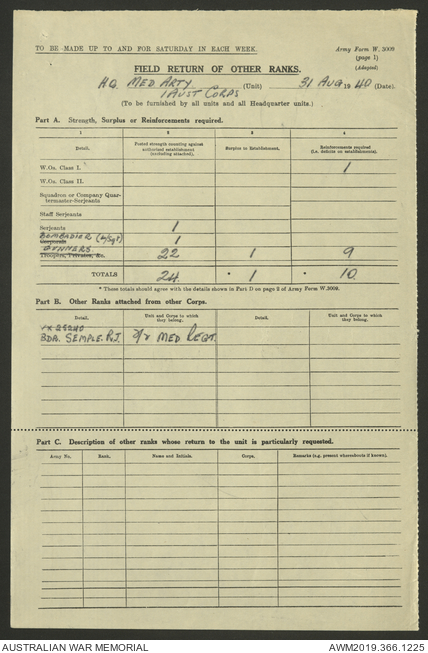 TO BE MADE UP TO AND FOR SATURDAY IN EACH WEEK.
Army Form W. 3009
(page 1)
(Adapted)
FIELD RETURN OF OTHER RANKS.
HQ MED ARTY (Unit) 31 AUG 1940 (Date).
1 AUST CORPS
(To be furnished by all units and all Headquarter units.)
Part A. Strength, Surplus or Reinforcements required.
1 2 3 4
Detail. Posted strength counting against authorised establishment (excluding attached). Surplus to Establishment. Reinforcements required (i.e. deficits on establishments).
W.Os. Class I. 1
W.Os. Class II.
Squadron or Company Quar-
termaster-Serjeants
Staff Serjeants
Serjeants 1
BOMBADIOR (L/Sgt) 1
Corporals
GUNNERS. 22 1 9
Troopers, Privates, &c.
TOTALS 24 * 1 * 10
* These totals should agree with the details shown in Part D on page 2 of Army Form W.3009.
Part B. Other Ranks attached from other Corps.
Detail. Unit and Corps to which they belong. Detail. Unit and Corps to which they belong.
BDR. SEMPLE. R.J. MED REGT.
Part C. Description of other ranks whose return to the unit is particularly requested.
Army No. Rank. Name and Initials. Corps. Remarks (e.g. present whereabouts if known).
AUSTRALIAN WAR MEMORIAL
AWM2019.366.1225